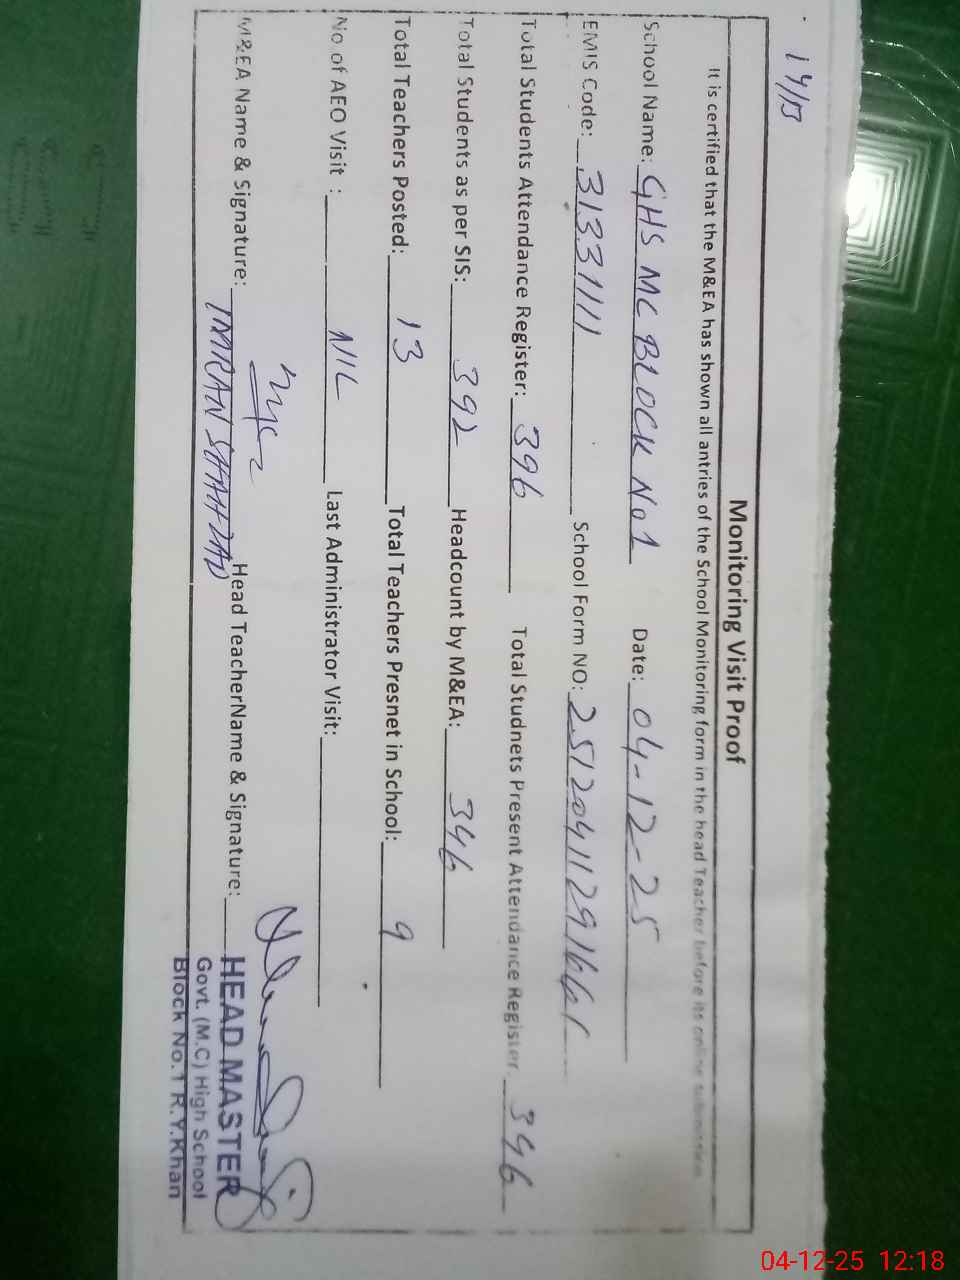 14/B
Monitoring Visit Proof
It is certified that the M&EA has shown all antries of the School Monitoring form in the head Teacher before its online submission
School Name: GHS MC BLOCK No 1 Date: 04-12-25
EMIS Code: 31331111 School Form NO:
Total Students Attendance Register: 396 Total Studnets Present Attendance Register: 346
Total Students as per SIS: 392 Headcount by M&EA: 346
Total Teachers Posted: 13 Total Teachers Presnet in School: 9
No of AEO Visit : NIL Last Administrator Visit:
M&EA Name & Signature: Head TeacherName & Signature:
IMRAN SHAHZAD
HEAD MASTER
Govt. (M.C) High School
Block No.1 R.Y.Khan
04-12-25 12:18